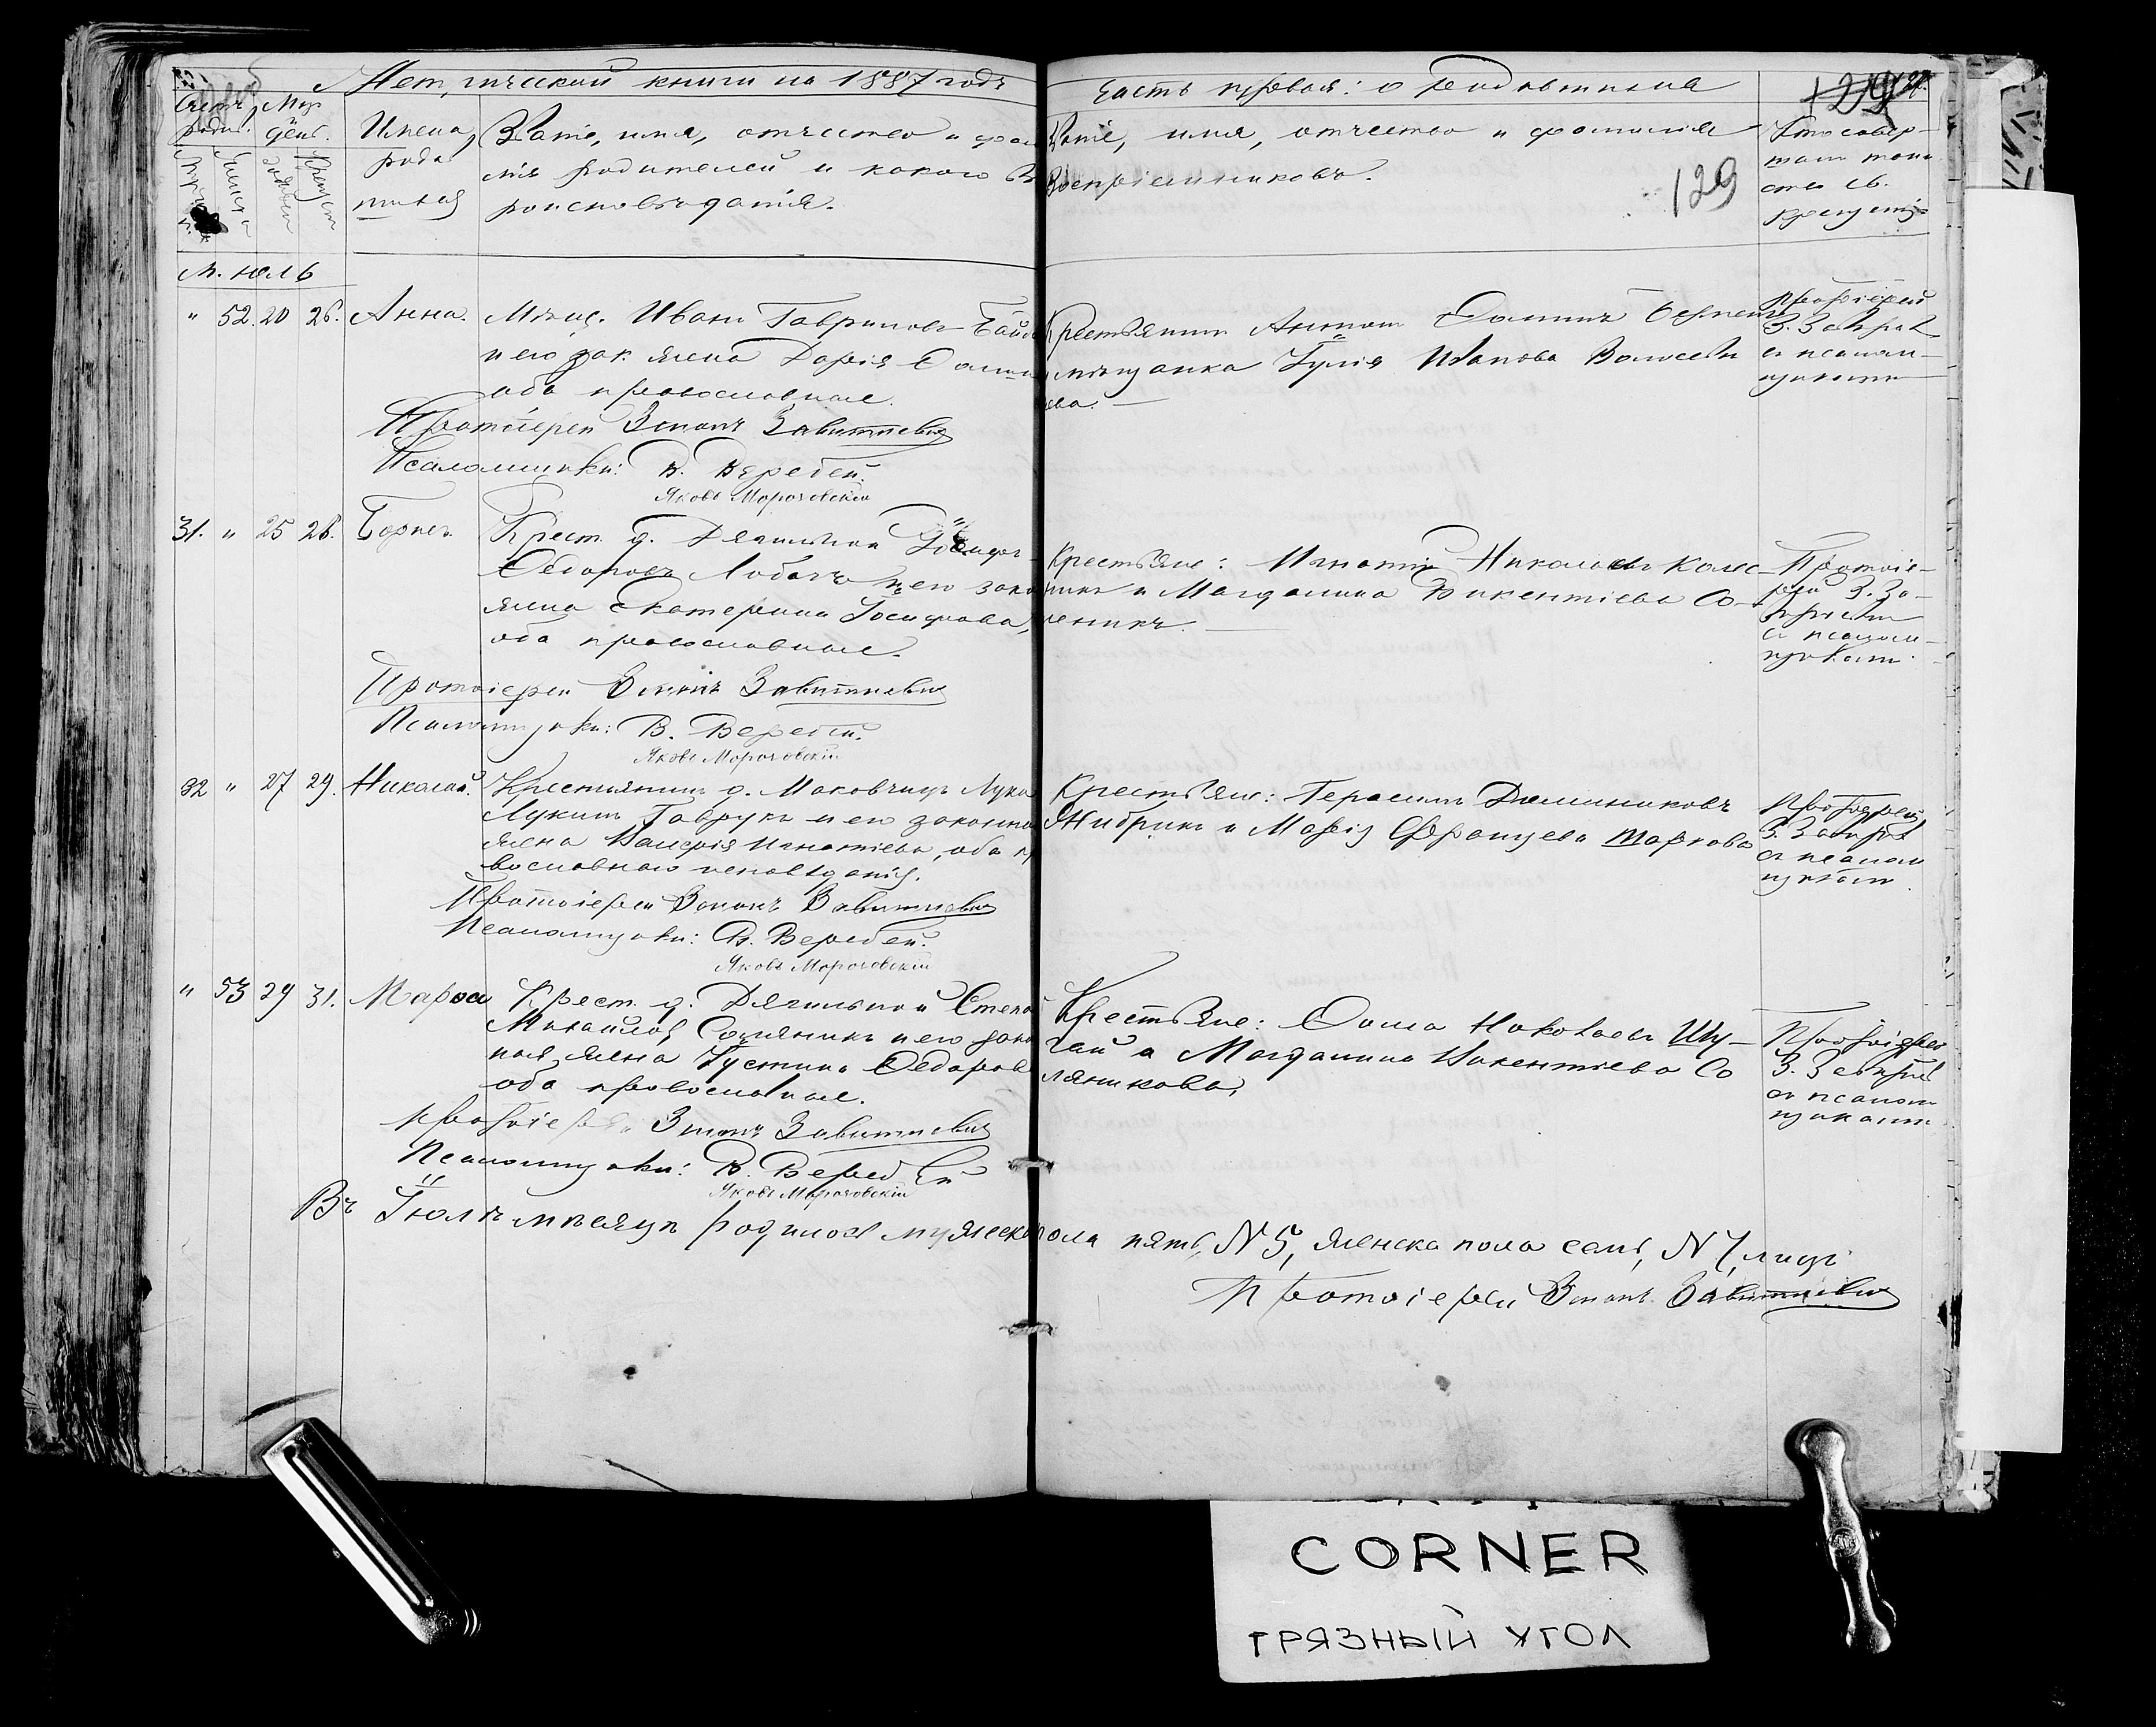 Метрической книги на 1887 годъ
Часть первая: о родившихся
129
Имена
роди
Званіе, имя, отчество и фами
лія родителей и какого вѣ
роисповѣданія.
Званіе, имя, отчество и фамилія
Воспріемниковъ.
129
Кто совер-
шалъ таин
ство св.
крещенія
" 52. 20 26. Анна.
Мѣщ. Иванъ Гавриловъ
и его зак. жена Дарія
оба православные.
Протоіерей Зинонъ Завитневичъ
Псаломщики: В. Веребей.
Яковъ Морочовскій
Крестьянинъ Антонъ
и мѣщанка Іулія Иванова
ва.
Протоіерей
З. Завит
съ псалом-
щиками
31. " 25 26. Борисъ.
Крест. д. Дягильной
Ѳедоровъ Лобачъ и его зако
жена Екатерина Іосифова,
оба православные.
Протоіерей Зинонъ Завитневичъ
Псаломщики: В. Веребей.
Яковъ Морочовскій
Крестьяне: Игнатій Николаевъ Колес-
никъ и Магдалина Викентіева Со-
леникъ.
Протоіе-
рей З. За-
съ псалом-
щиками.
32 " 27 29. Николай.
Крестьянинъ д. Маковчицъ Лука
Лукинъ Гаврукъ и его законна
жена Валерія Игнатіева, оба пр
вославнаго исповѣданія.
Протоіерей Зинонъ Завитневичъ
Псаломщики: В. Веребей.
Яковъ Морочовскій
Крестьяне: Герасимъ Доминиковъ
Жибрикъ и Марія Францева Шаркова
Протоіерей
З. Завит
съ псалом
щиками.
" 53 29 31. Марѳа
Крест. д. Дягильной Степа
Михайловъ и его зако
ная жена Іустина Ѳедоров
оба православные.
Протоіерей Зинонъ Завитневичъ
Псаломщики: В. Веребей
Яковъ Морочовскій
Крестьяне: Ѳома Николаевъ Шу-
гай и Магдалина Викентіева Со
ляникова,
Протоіерей
З. Завит
съ псалом
щиками
Въ Іюлѣ мѣсяцѣ родилось мужеска пола пять, N 5, женска пола семь, N 7, лицъ
Протоіерей Зинонъ Завитневичъ
CORNER
ГРЯЗНЫЙ УГОЛ